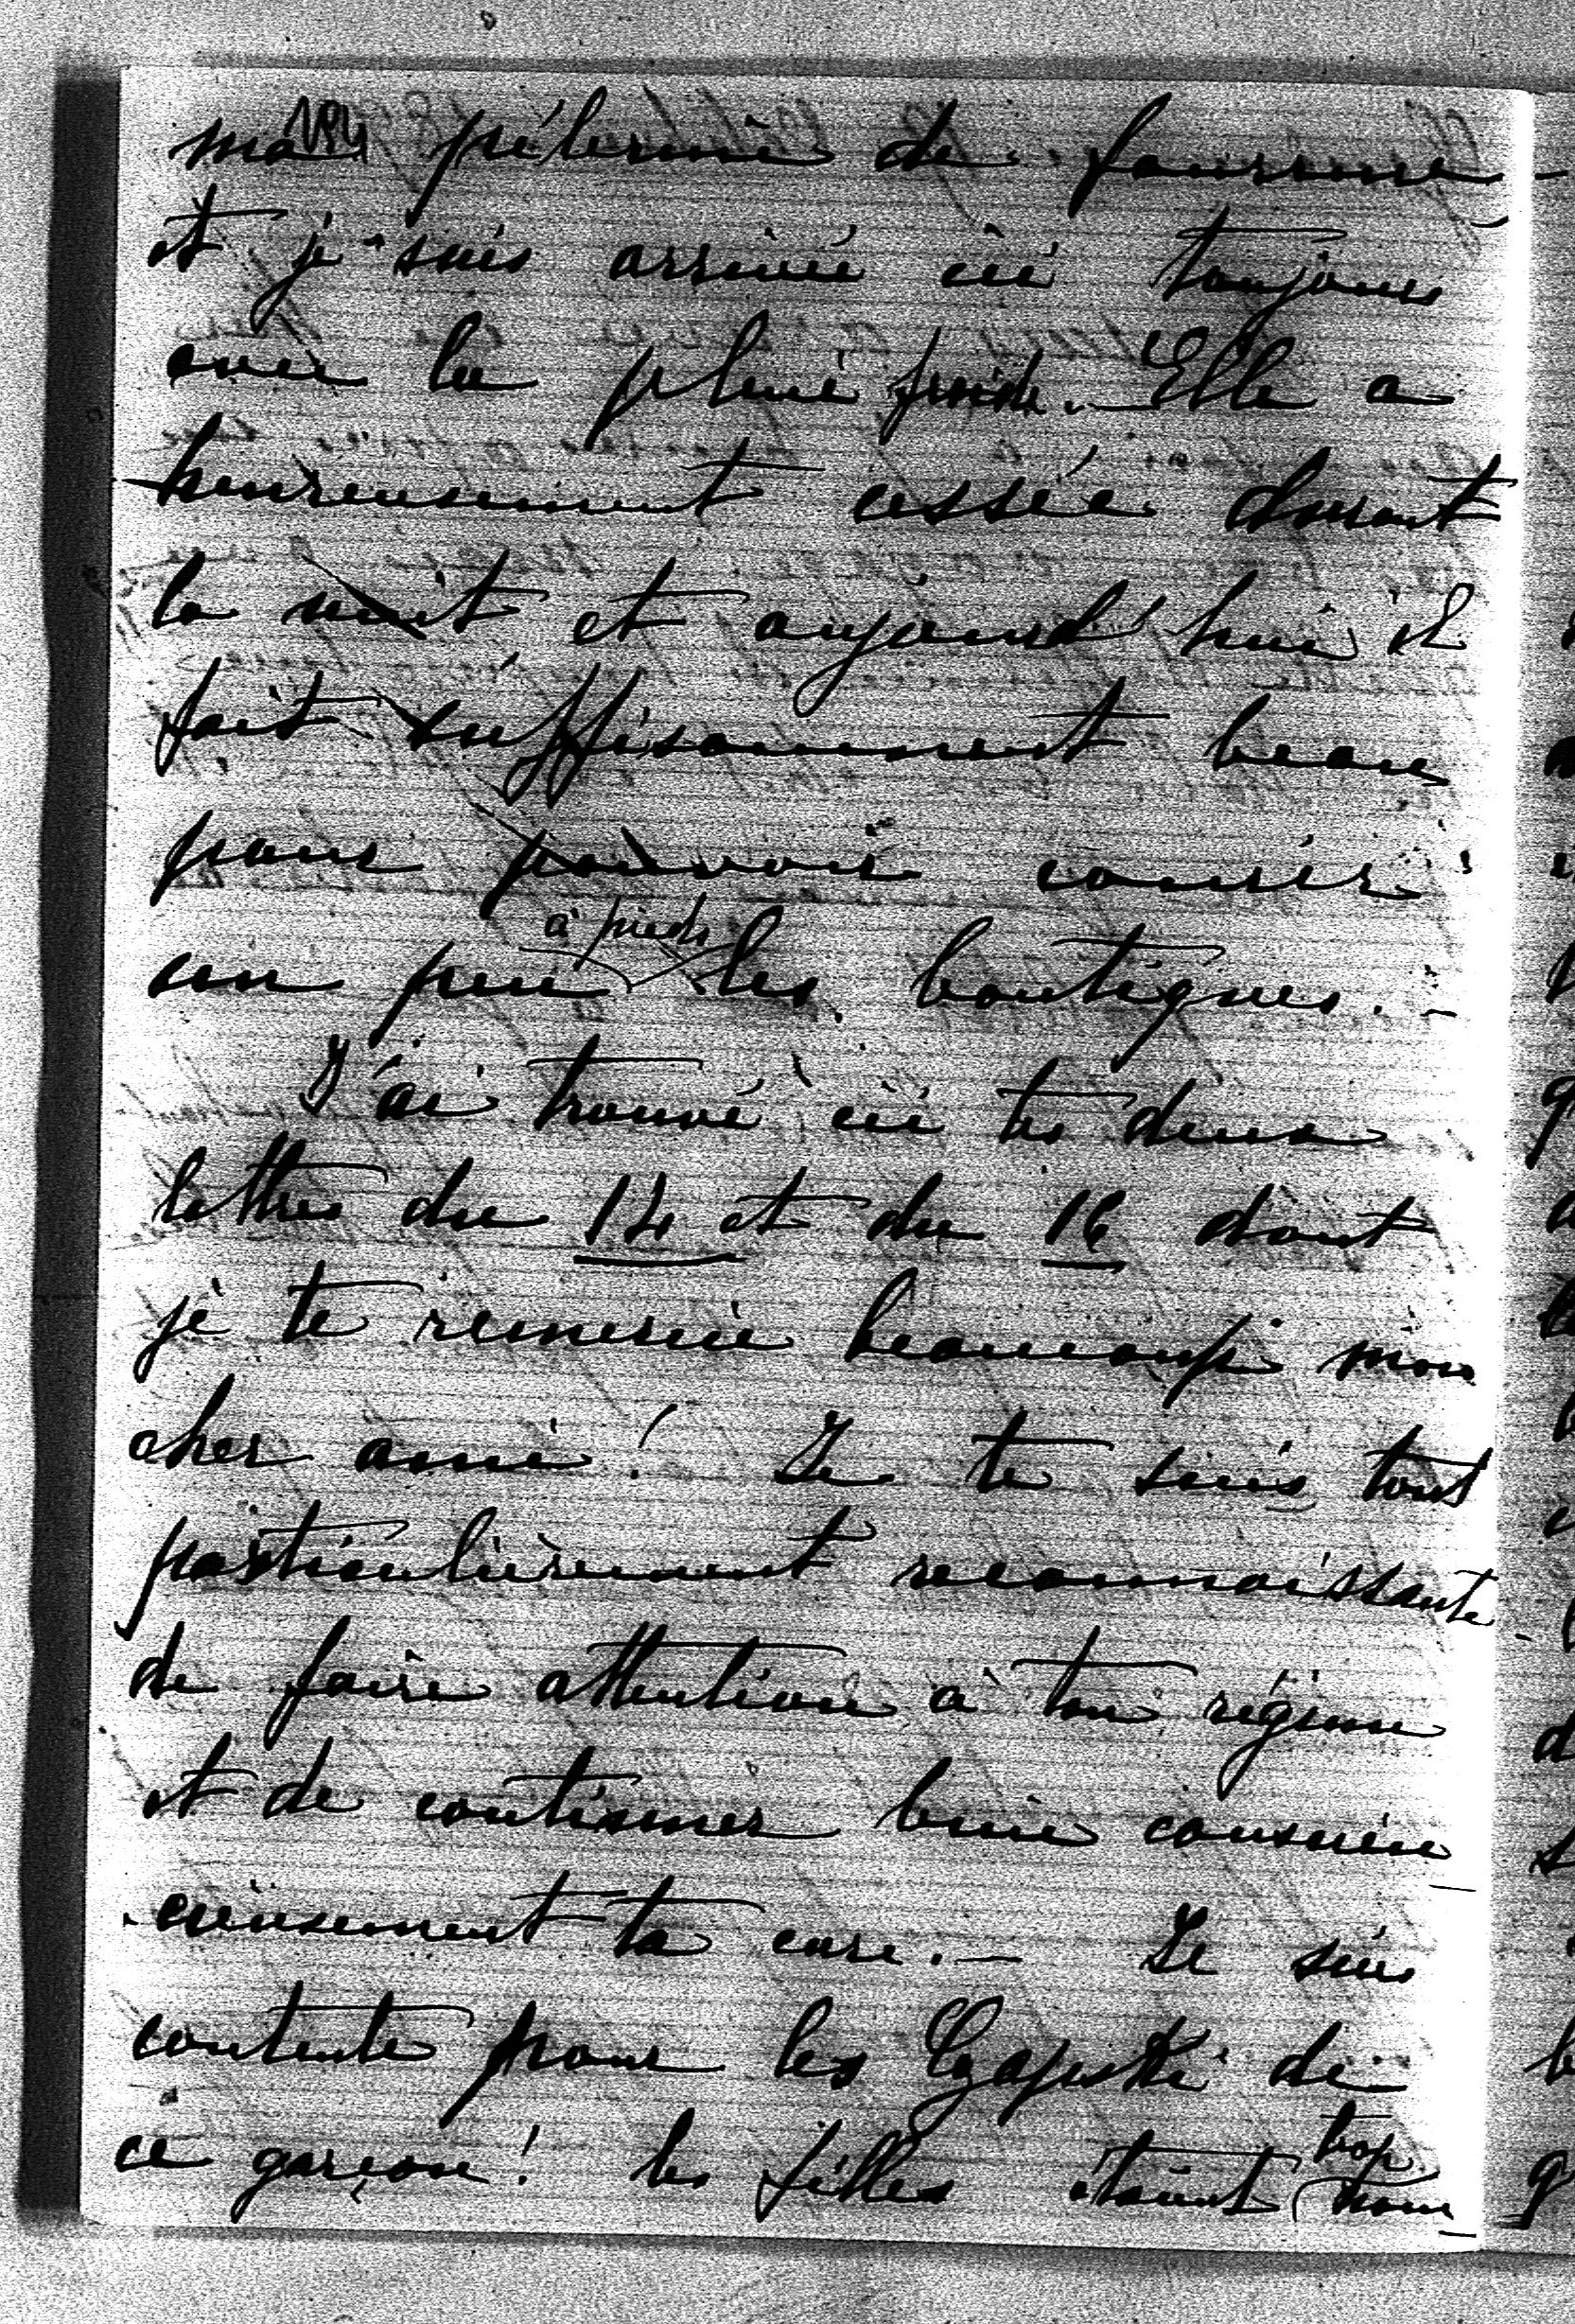 ma pélerine de fourrure –
et je suis arrivée ici toujours
avec la pluie froide. – Elle a
heureusement cessée durant
la nuit et aujourd'hui il
fait suffisamment beau
pour pouvoir courir
un peu à pieds les boutiques. –
J'ai trouvé ici tes deux
lettres du 14 et du 16 dont
je te remercie beaucoup mon
cher ami! Je te suis tout
particulièrement reconnaissante –
de faire attention à ton régime
et de continuer bien conscien–
cieusement ta cure. – Je suis
contente pour les de
ce garçon! les filles étaient trop nom–